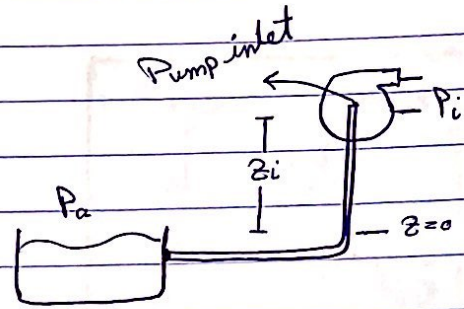 Pump inlet
Pi
Zi
Pa
Z=0